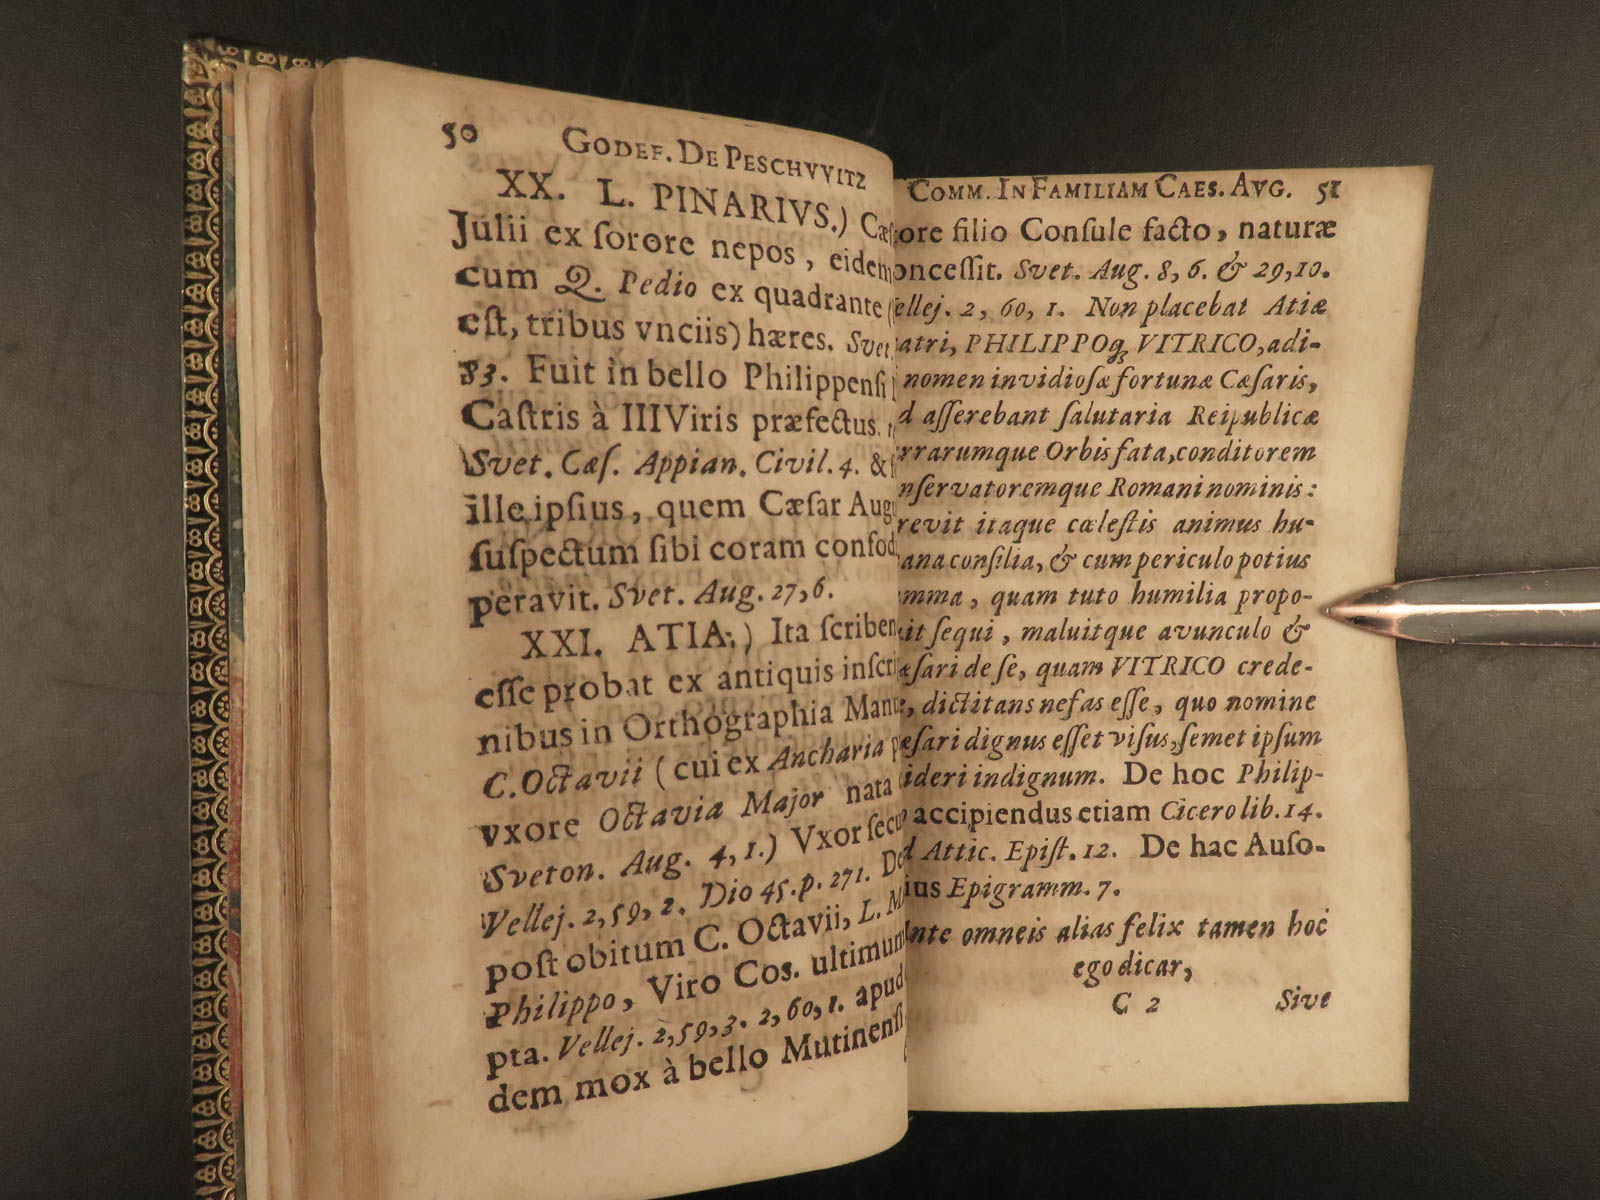 50 GODEF. DE PESCHVVITZ
XX. L. PINARIVS.) Cæſ
Julii ex ſorore nepos, eidem
cum Q. Pedio ex quadrante (
eſt, tribus vnciis) hæres. Svet.
83. Fuit in bello Philippenſi
Caſtris à IIIViris præfectus.
Svet. Cæſ. Appian. Civil. 4. &
ille ipſius, quem Cæſar Aug
ſuſpectum ſibi coram confod
peravit. Svet. Aug. 27, 6.
XXI. ATIA.) Ita ſcriben
eſſe probat ex antiquis inſcri
nibus in Orthographia Manu
C. Octavii (cui ex Ancharia
vxore Octavia Major nata
Sveton. Aug. 4, 1.) Vxor ſecu
Vellej. 2, 59, 2. Dio 45. p. 271. De
poſt obitum C. Octavii, L. M
Philippo, Viro Cos. ultimum
pta. Vellej. 2, 59, 3. 2, 60, 1. apud
dem mox à bello Mutinenſi
COMM. IN FAMILIAM CAES. AVG. 51
ore filio Conſule facto, naturæ
onceſſit. Svet. Aug. 8, 6. & 29, 10.
ellej. 2, 60, 1. Non placebat Atiæ
atri, PHILIPPOq; VITRICO, adi-
nomen invidioſæ fortunæ Cæſaris,
d aſſerebant ſalutaria Reipublicæ
rrarumque Orbis fata, conditorem
nſervatoremque Romani nominis:
revit itaque cæleſtis animus hu-
ana conſilia, & cum periculo potius
mma, quam tuto humilia propo-
it ſequi, maluitque avunculo &
æſari de ſe, quam VITRICO crede-
, dictitans nefas eſſe, quo nomine
æſari dignus eſſet viſus, ſemet ipſum
ideri indignum. De hoc Philip-
accipiendus etiam Cicero lib. 14.
d Attic. Epiſt. 12. De hac Auſo-
ius Epigramm. 7.
nte omneis alias felix tamen hoc
ego dicar,
C 2 Sive